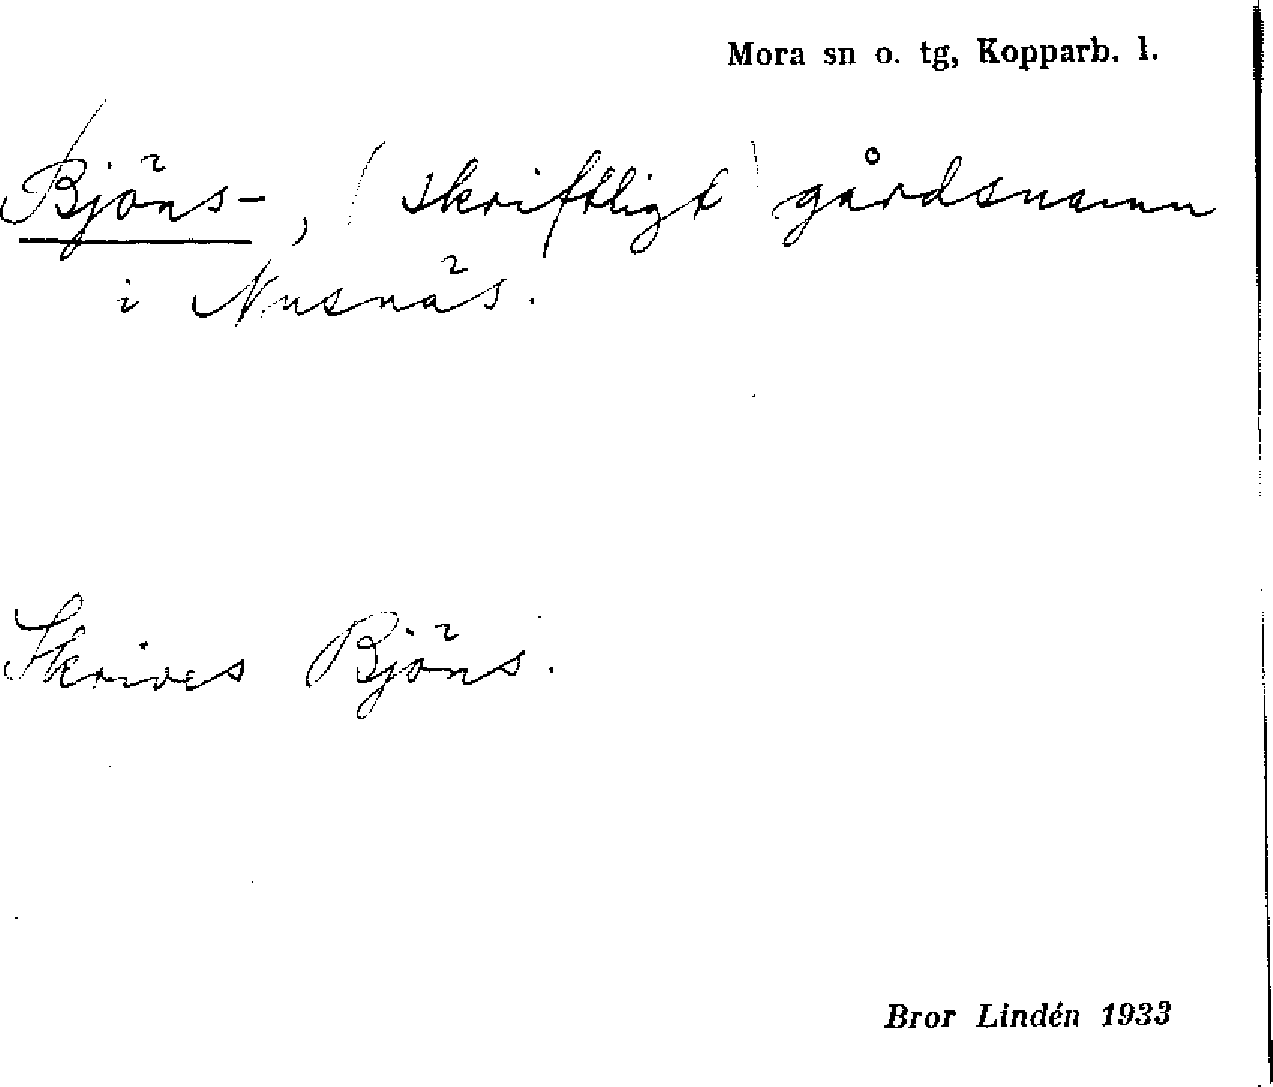 Mora sn o. tg, Kopparb. l.
Bjöns-, (skriftligt) gårdsnamn
i Nusnäs.
Skrives Bjöns.
Bror Lindén 1933